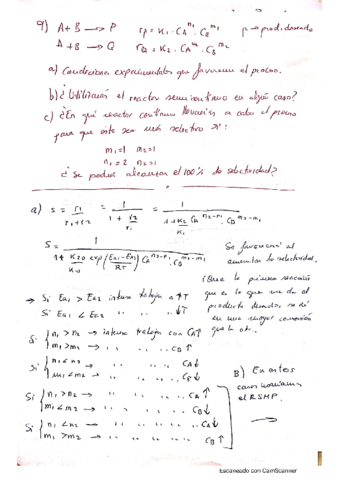 9) A + B → P    rp = K1 · CA^n1 · CB^m1    p → prod. deseado
A + B → Q    rQ = K2 · CA^n2 · CB^m2
a) Condiciones experimentales que favorecen el proceso.
b) ¿Utilizarías el reactor semicontinuo en algún caso?
c) ¿En qué reactor continuo llevarías a cabo el proceso
para que este sea más selectivo si:
m1=1  m2=1
n1=2  n2=1
¿Se podría alcanzar el 100% de selectividad?
a) S = r1/(r1+r2) = 1/(1 + r2/r1) = 1/(1 + K2/K1 CA^n2-n1 · CB^m2-m1)
S = 1/(1 + K20/K10 exp((Ea1-Ea2)/RT) CA^n2-n1 · CB^m2-m1)
Se favorecerá al
aumentar la selectividad.
(Que la primera reacción
que es la que me da el
producto deseado, se dé
en una mayor
que la otra.
→ Si Ea1 > Ea2 interesa trabajar a ↑T
Si Ea1 < Ea2 " " " ↓T
Si { n1 > n2 → interesa trabajar con CA↑
m1 > m2 → " " " CB↑
Si { n1 < n2 → " " " CA↓
m1 < m2 → " " " CB↓
Si { n1 > n2 → " " " CA↑
m1 < m2 → " " " CB↓
Si { n1 < n2 → " " " CA↓
m1 > m2 → " " " CB↑
B) En estos
casos
el RSMP.
Escaneado con CamScanner